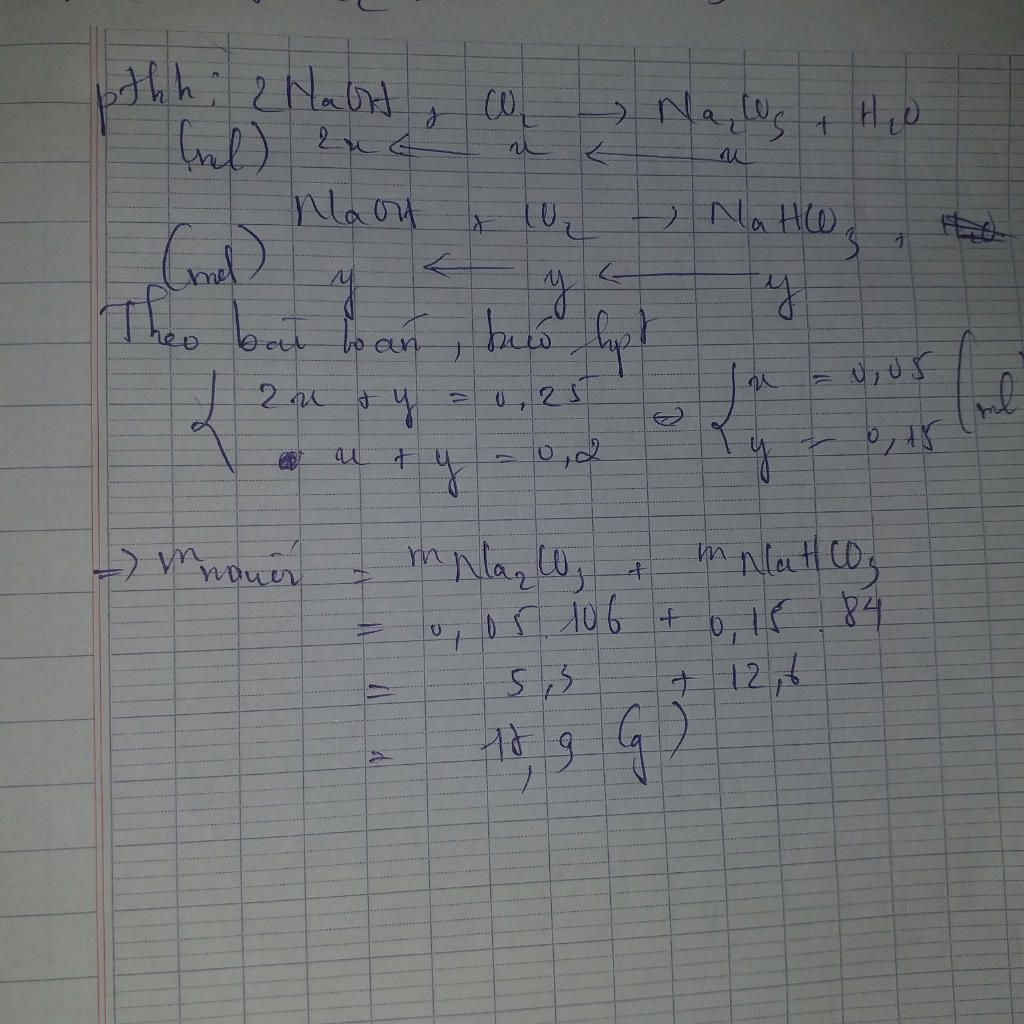 pthh: 2NaOH + CO₂ → Na₂CO₃ + H₂O
(mol) 2x ← x ← x
NaOH + CO₂ → NaHCO₃ +
(mol) y ← y ← y
Theo bài toán, ta có hpt
{ 2x + y = 0,25 ⇔ { x = 0,05 (mol
x + y = 0,2 y = 0,15
=> m muối = m Na₂CO₃ + m NaHCO₃
= 0,05.106 + 0,15.84
= 5,3 + 12,6
= 17,9 (g)